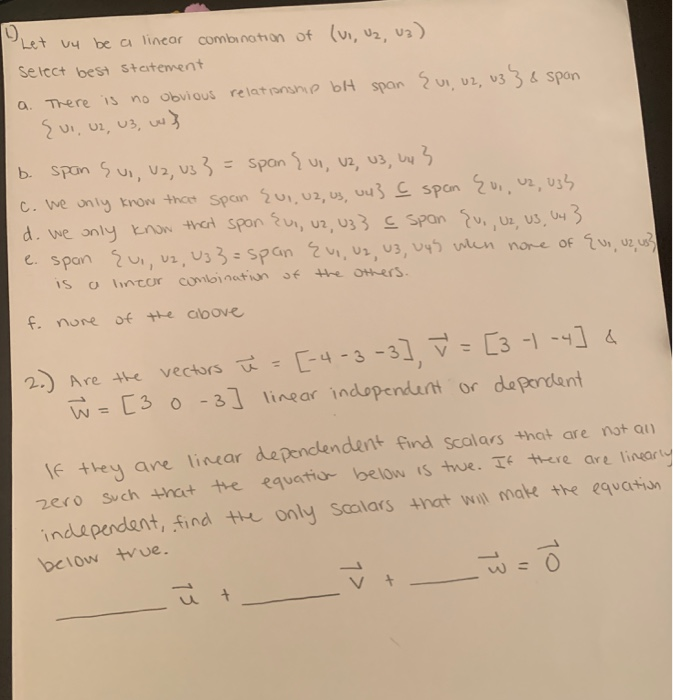 1) Let v4 be a linear combination of (v1, v2, v3)
Select best statement
a. There is no obvious relationship btt span {v1, v2, v3} & span
{v1, v2, v3, v4}
b. span {v1, v2, v3} = span {v1, v2, v3, v4}
c. we only know that span {v1, v2, v3, v4} ⊆ span {v1, v2, v3}
d. we only know that span {v1, v2, v3} ⊆ span {v1, v2, v3, v4}
e. span {v1, v2, v3} = span {v1, v2, v3, v4} when none of {v1, v2, v3}
is a linear combination of the others.
f. none of the above
2.) Are the vectors u⃗ = [-4 -3 -3], v⃗ = [3 -1 -4] &
w⃗ = [3 0 -3] linear independent or dependent
If they are linear dependendent find scalars that are not all
zero such that the equation below is true. If there are linearly
independent, find the only scalars that will make the equation
below true.
____ u⃗ + ____ v⃗ + ____ w⃗ = 0⃗